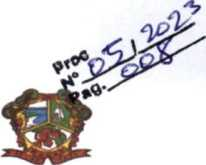 Proc
Nº 05/2023
Pag. 008